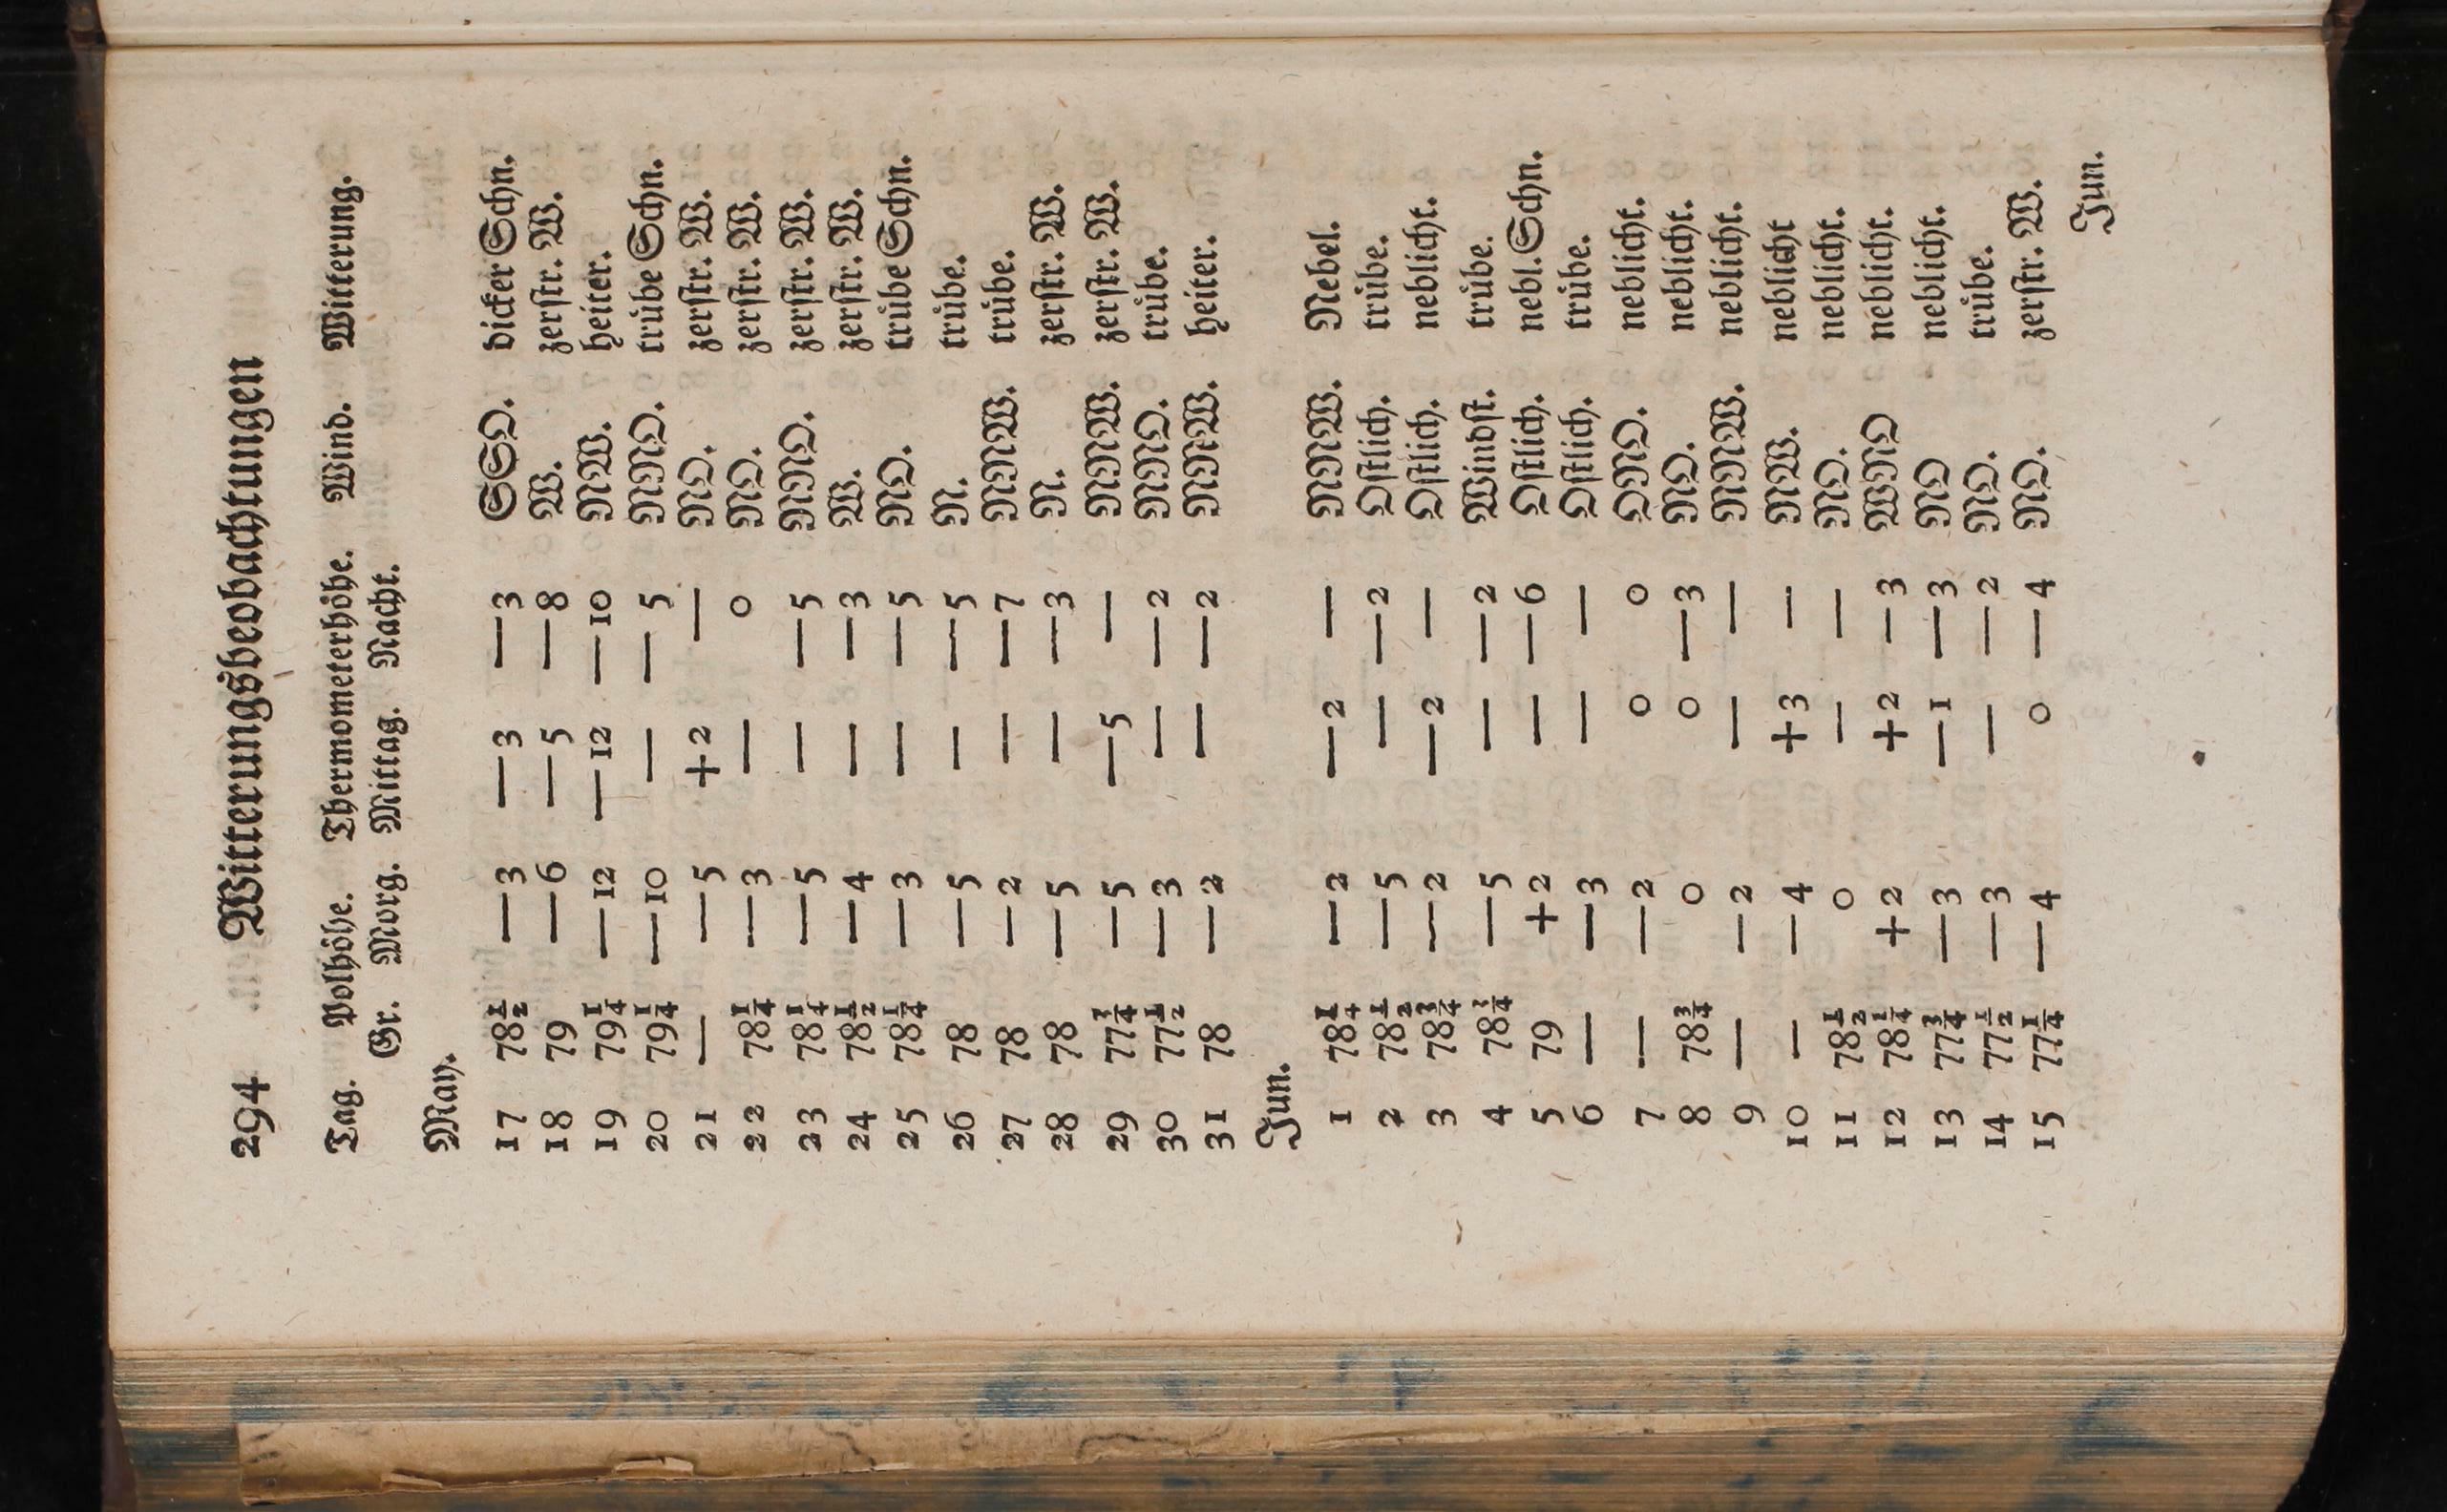 294 Witterungsbeobachtungen
Tag. Polhöhe. Thermometerhöhe. Wind. Witterung.
Gr. Morg. Mittag. Nacht.
May.
17 78½ —3 —3 —3 SSO. dicker Schn.
18 79 —6 —5 —8 W. zerſtr. W.
19 79¼ —12 —12 —10 NW. heiter.
20 79¼ —10 — — 5 NNO. trübe Schn.
21 — —5 +2 — NO. zerſtr. W.
22 78¼ —3 — 0 NO. zerſtr. W.
23 78¼ —5 — —5 NNO. zerſtr. W.
24 78½ —4 — —3 W. zerſtr. W.
25 78¼ —3 — —5 NO. trübe Schn.
26 78 —5 — —5 N. trübe.
27 78 —2 — —7 NNW. trübe.
28 78 —5 — —3 N. zerſtr. W.
29 77¾ —5 —5 — NNW. zerſtr. W.
30 77½ —3 — —2 NNO. trübe.
31 78 —2 — —2 NNW. heiter.
Jun.
1 78¼ —2 —2 — NNW. Nebel.
2 78½ —5 — —2 Oſtlich. trübe.
3 78¾ —2 —2 — Oſtlich. neblicht.
4 78¾ —5 — —2 Windſt. trübe.
5 79 +2 — —6 Oſtlich. nebl. Schn.
6 — —3 — — Oſtlich. trübe.
7 — —2 0 0 ONO. neblicht.
8 78¾ 0 0 —3 NO. neblicht.
9 — —2 — — NNW. neblicht.
10 — —4 +3 — NW. neblicht
11 78½ 0 — — NO. neblicht.
12 78¼ +2 +2 —3 WNO neblicht.
13 77¾ —3 —1 —3 NO neblicht.
14 77½ —3 — —2 NO. trübe.
15 77¼ —4 0 —4 NO. zerſtr. W.
Jun.